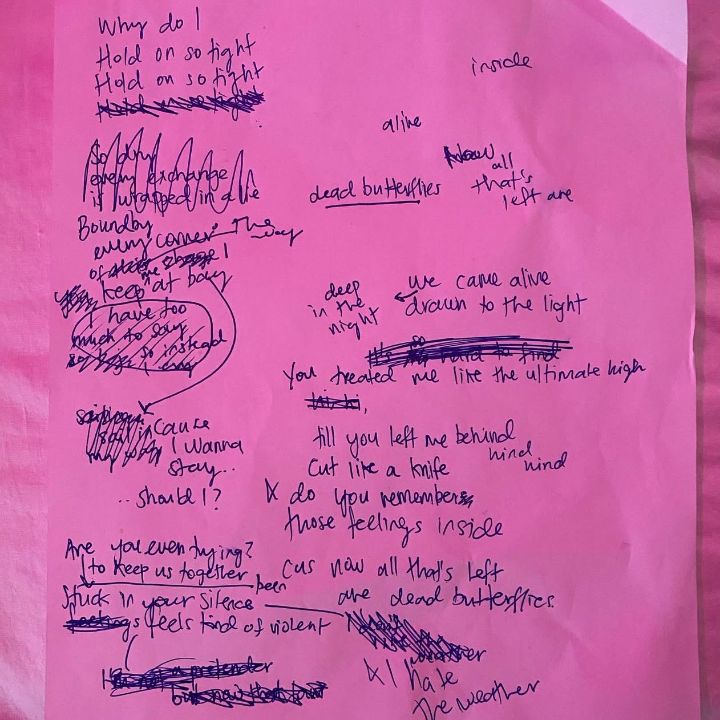 Why do I
Hold on so tight
Hold on so tight
inside
alive
So dry
every exchange
is wrapped in a lie
Now all
that's
left are
dead butterflies
Boundby
every corner The way
of
keep me at bay
I have too
much to say
so instead
deep
in the
night
we came alive
drawn to the light
You treated me like the ultimate high
till you left me behind
hind
hind
cut like a knife
& do you remember
those feelings inside
cus now all that's left
are dead butterflies
cause
I wanna
stay..
..should I?
Are you even trying?
to keep us together
been
Stuck in your silence
feels kind of violent
pretender
but now that
& I hate
the weather